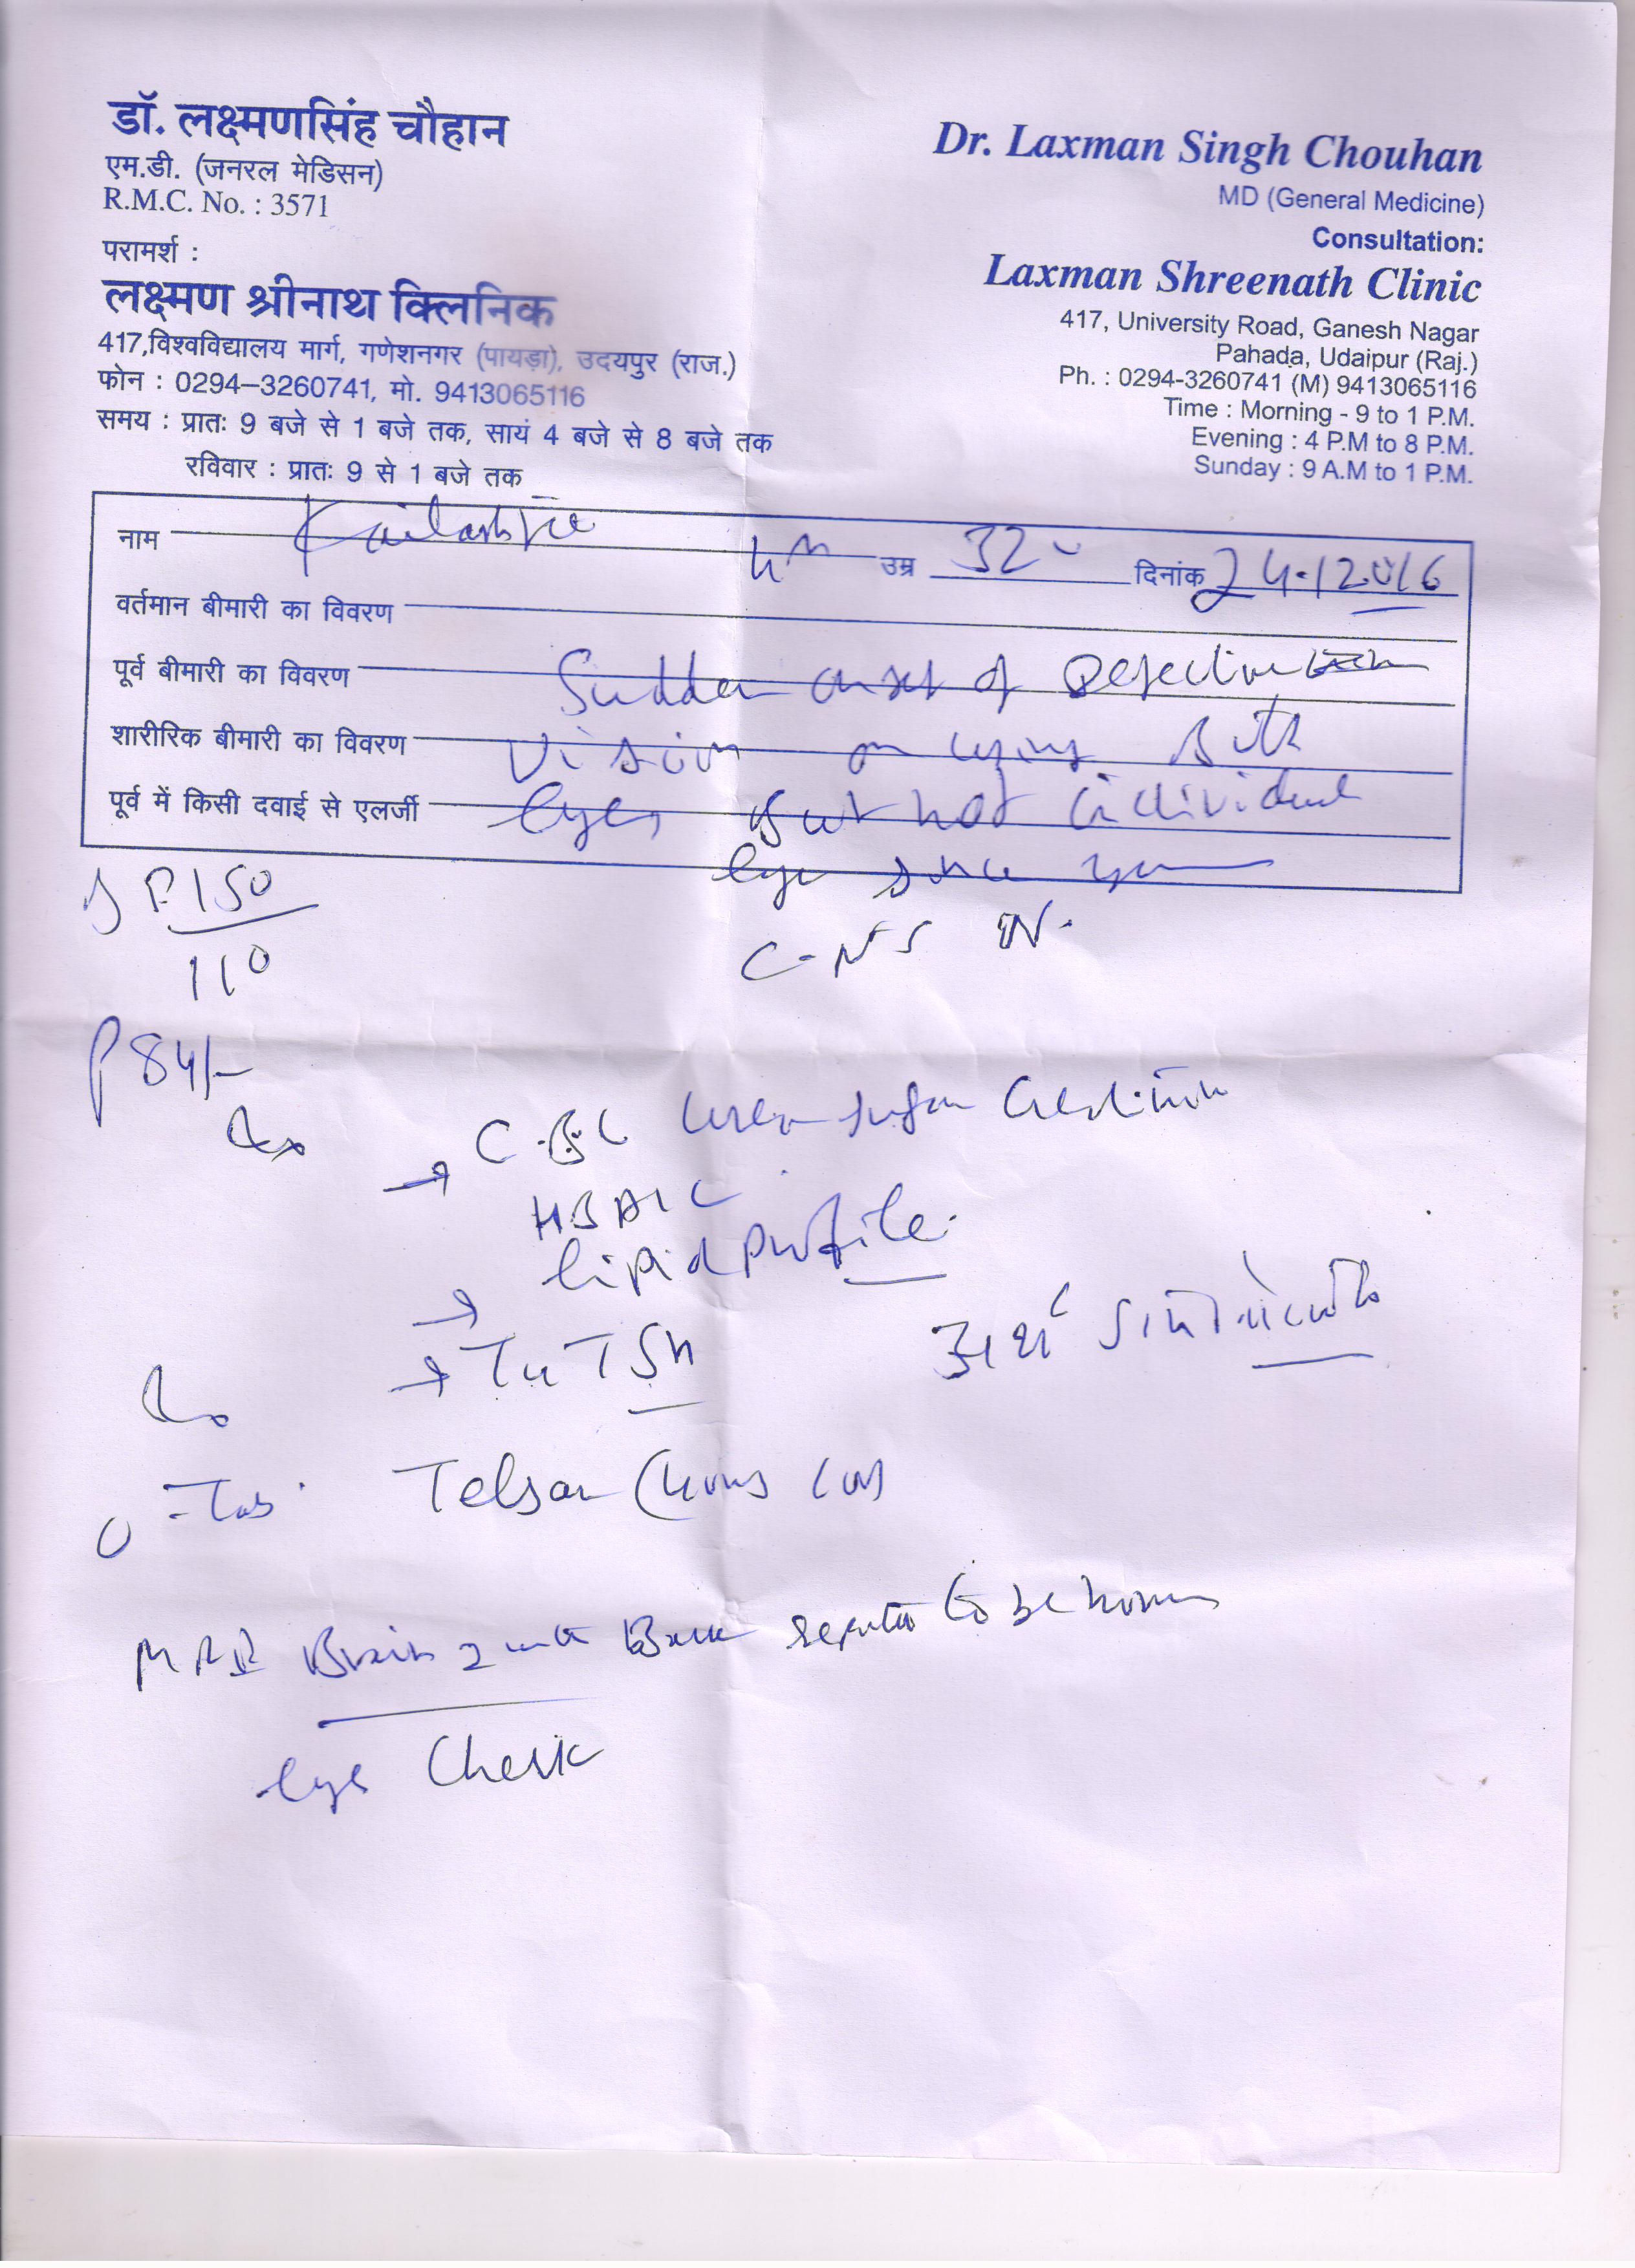 डॉ. लक्ष्मणसिंह चौहान
एम.डी. (जनरल मेडिसन)
R.M.C. No. : 3571
परामर्श :
लक्ष्मण श्रीनाथ क्लिनिक
417,विश्वविद्यालय मार्ग, गणेशनगर (पायड़ा), उदयपुर (राज.)
फोन : 0294-3260741, मो. 9413065116
समय : प्रातः 9 बजे से 1 बजे तक, सायं 4 बजे से 8 बजे तक
रविवार : प्रातः 9 से 1 बजे तक
Dr. Laxman Singh Chouhan
MD (General Medicine)
Consultation:
Laxman Shreenath Clinic
417, University Road, Ganesh Nagar
Pahada, Udaipur (Raj.)
Ph. : 0294-3260741 (M) 9413065116
Time : Morning - 9 to 1 P.M.
Evening : 4 P.M to 8 P.M.
Sunday : 9 A.M to 1 P.M.
नाम उम्र 32 दिनांक 24.12016
वर्तमान बीमारी का विवरण
पूर्व बीमारी का विवरण Sudden onset of Defective
शारीरिक बीमारी का विवरण Vision on using both
पूर्व में किसी दवाई से एलर्जी eyes but not individual
eye since
BP. 150
110
C-NS N.
P 84/-
→ C.B.C Urea sugar Creatinin
HBA1C
→ lipid profile.
→ T4 TSH
अर्थ
Tab. Telsar (40mg
MRI Brain
eye Check